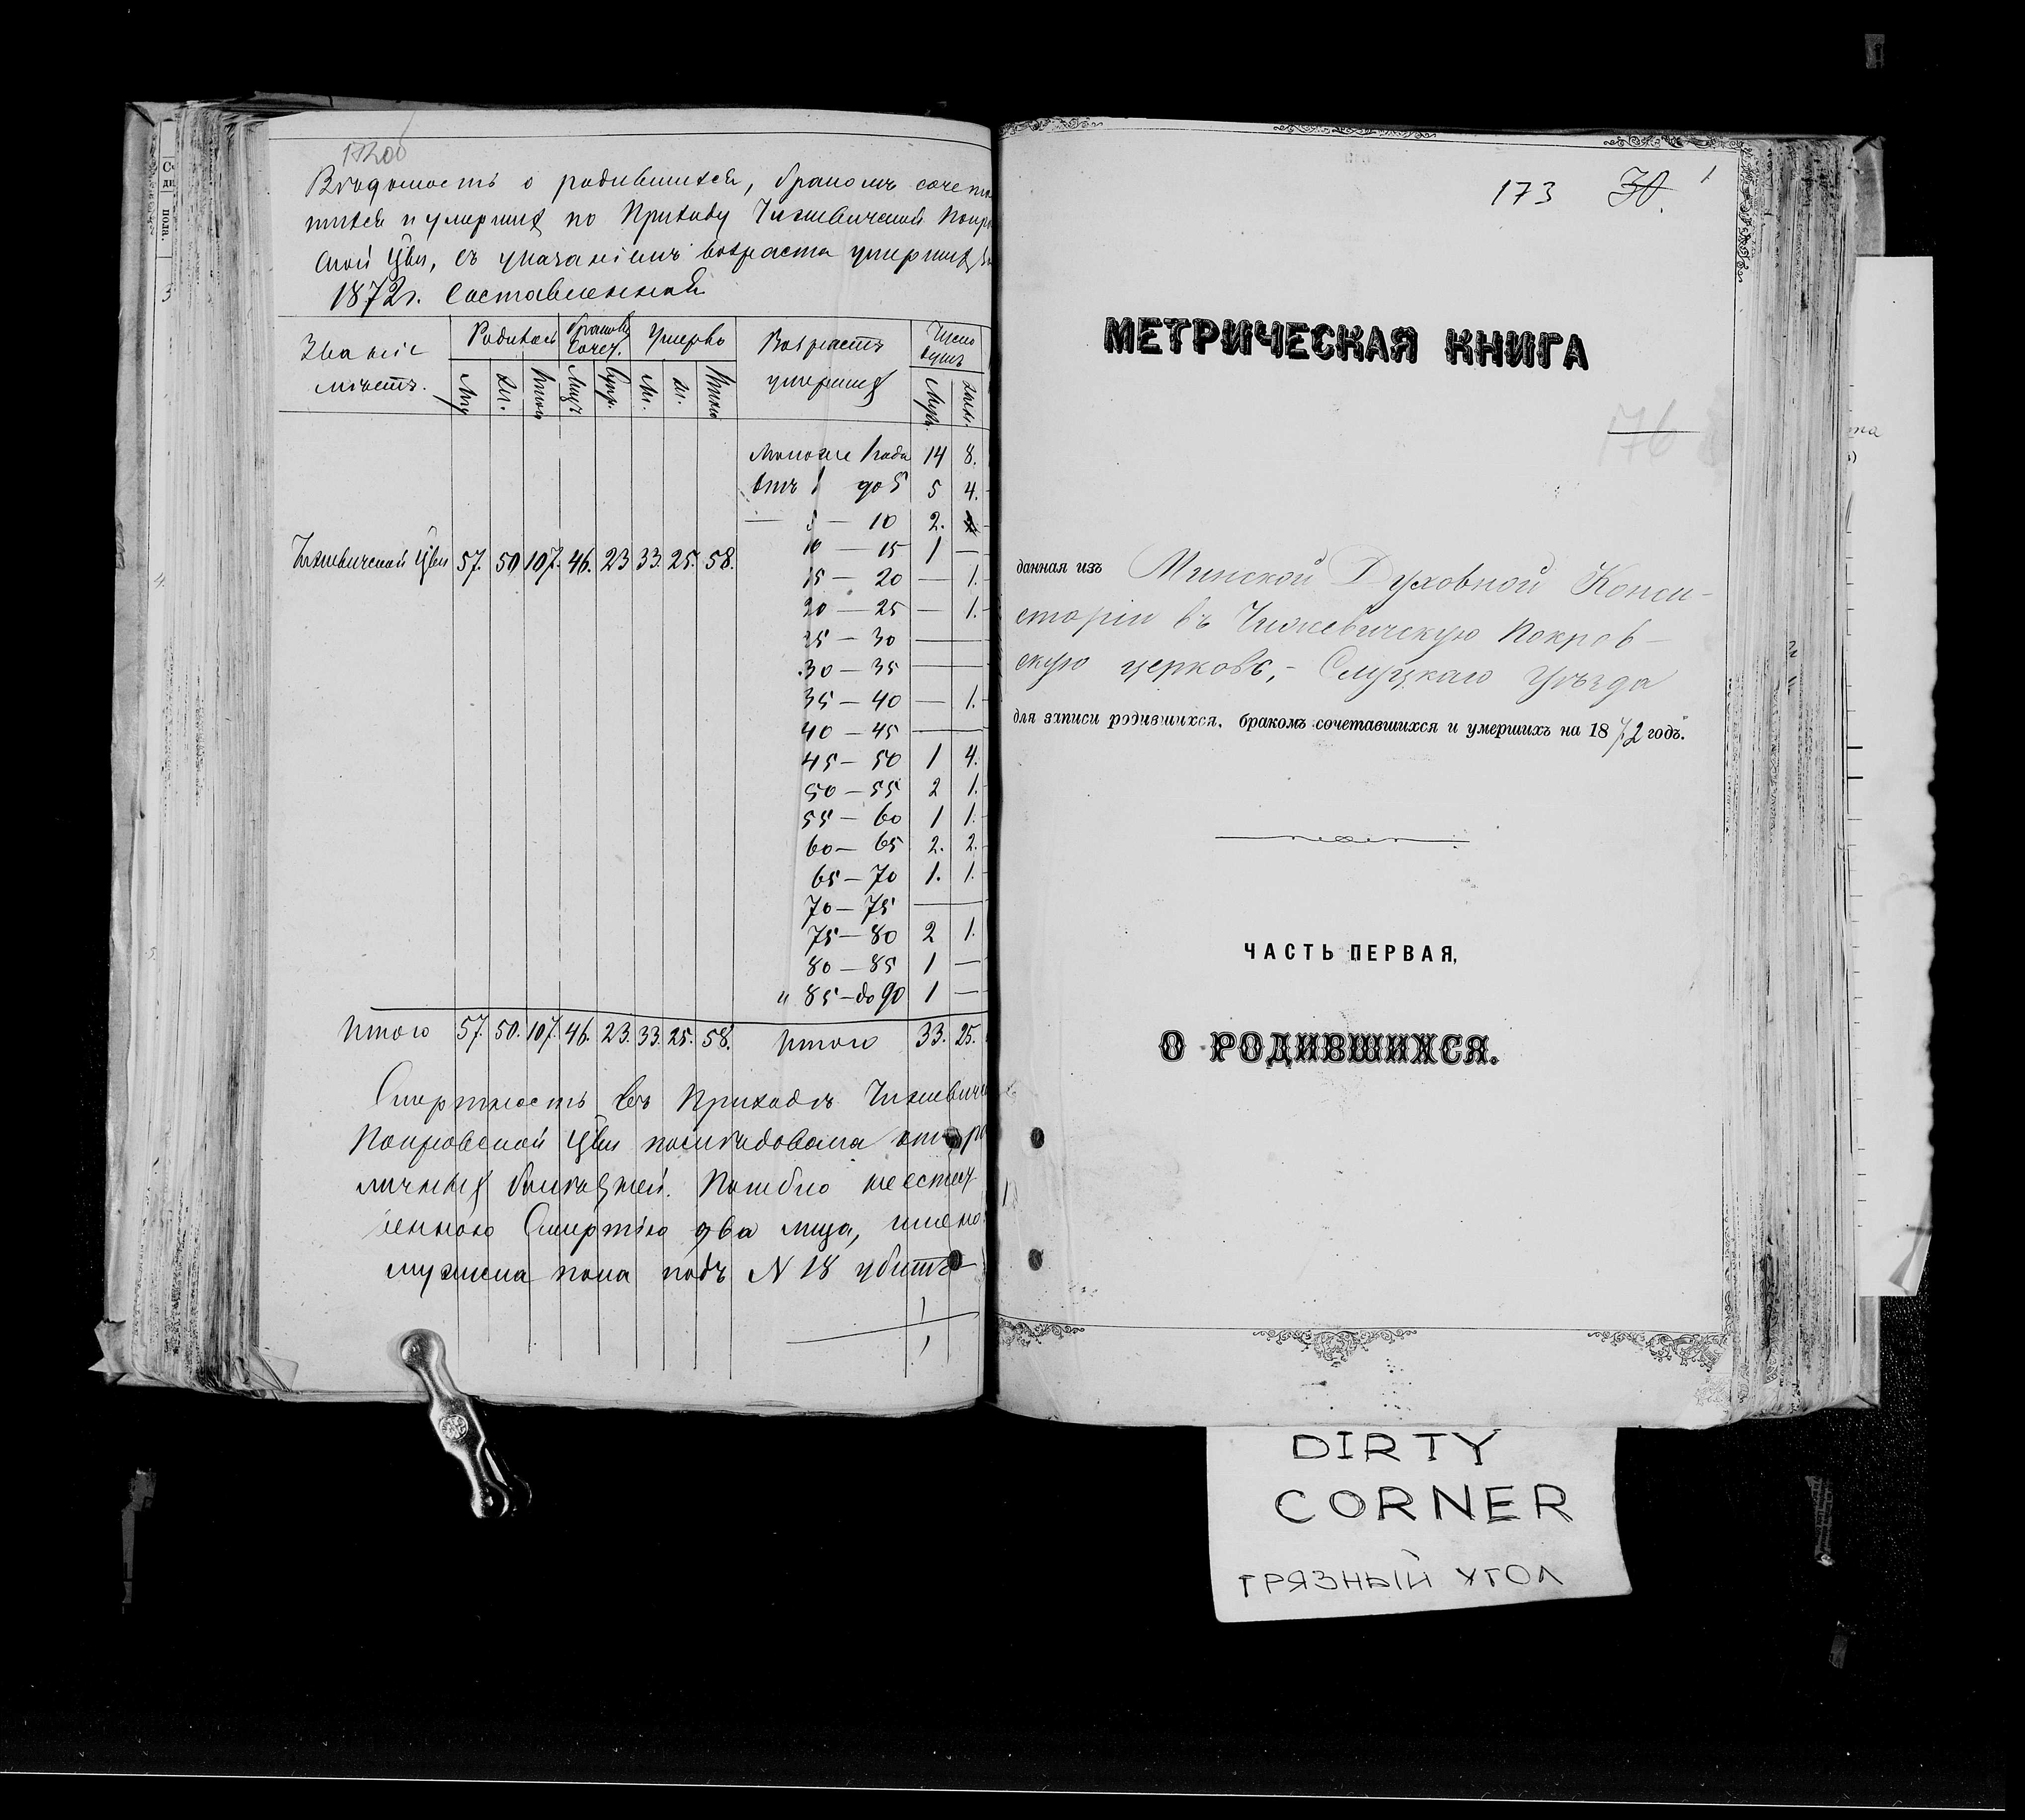 172об
Вѣдомость о родившихся, бракомъ сочета
шихся и умершихъ по Приходу Чижевичской Покро
ской Цѣви, съ указаніемъ возраста умершихъ за
1872 г. Составленная
Званіе мѣстъ.
Родилось
Браковъ Сочет.
Умерло
Возрастъ умершихъ
Число душъ
Му Ж. Итого Лицъ Супр. М. Ж. Итого Муж. Жен.
Моложе 1 года 14 8.
Отъ 1 до 5 5 4.
— 5 — 10 2.
Чижевичской Цѣви 57. 50 107. 46. 23 33. 25. 58.
10 — 15 1 —
15 — 20 — 1.
20 — 25 — 1.
25 — 30 —
30 — 35 —
35 — 40 — 1.
40 — 45 —
45 — 50 1 4.
50 — 55 2 1.
55 — 60 1 1.
60 — 65 2. 2.
65 — 70 1. 1.
70 — 75 —
75 — 80 2 1.
80 — 85 1 —
" 85 — до 90 1 —
Итого 57. 50. 107. 46. 23. 33. 25. 58. Итого 33. 25.
Смертность въ Приходѣ Чижевичс
Покровской Цѣви послѣдовала отъ ра
личныхъ болѣзней. Погибло неестест
венною Смертію два лица, имено
мужеска пола подъ N 18 убитъ
1
1
173 30. 1
МЕТРИЧЕСКАЯ КНИГА
176
данная изъ Минской Духовной Конси-
сторіи въ Чижевичскую Покров-
скую церковь, - Слуцкаго Уѣзда
для записи родившихся, бракомъ сочетавшихся и умершихъ на 1872 годъ.
ЧАСТЬ ПЕРВАЯ,
О РОДИВШИХСЯ.
DIRTY
CORNER
ГРЯЗНЫЙ УГОЛ